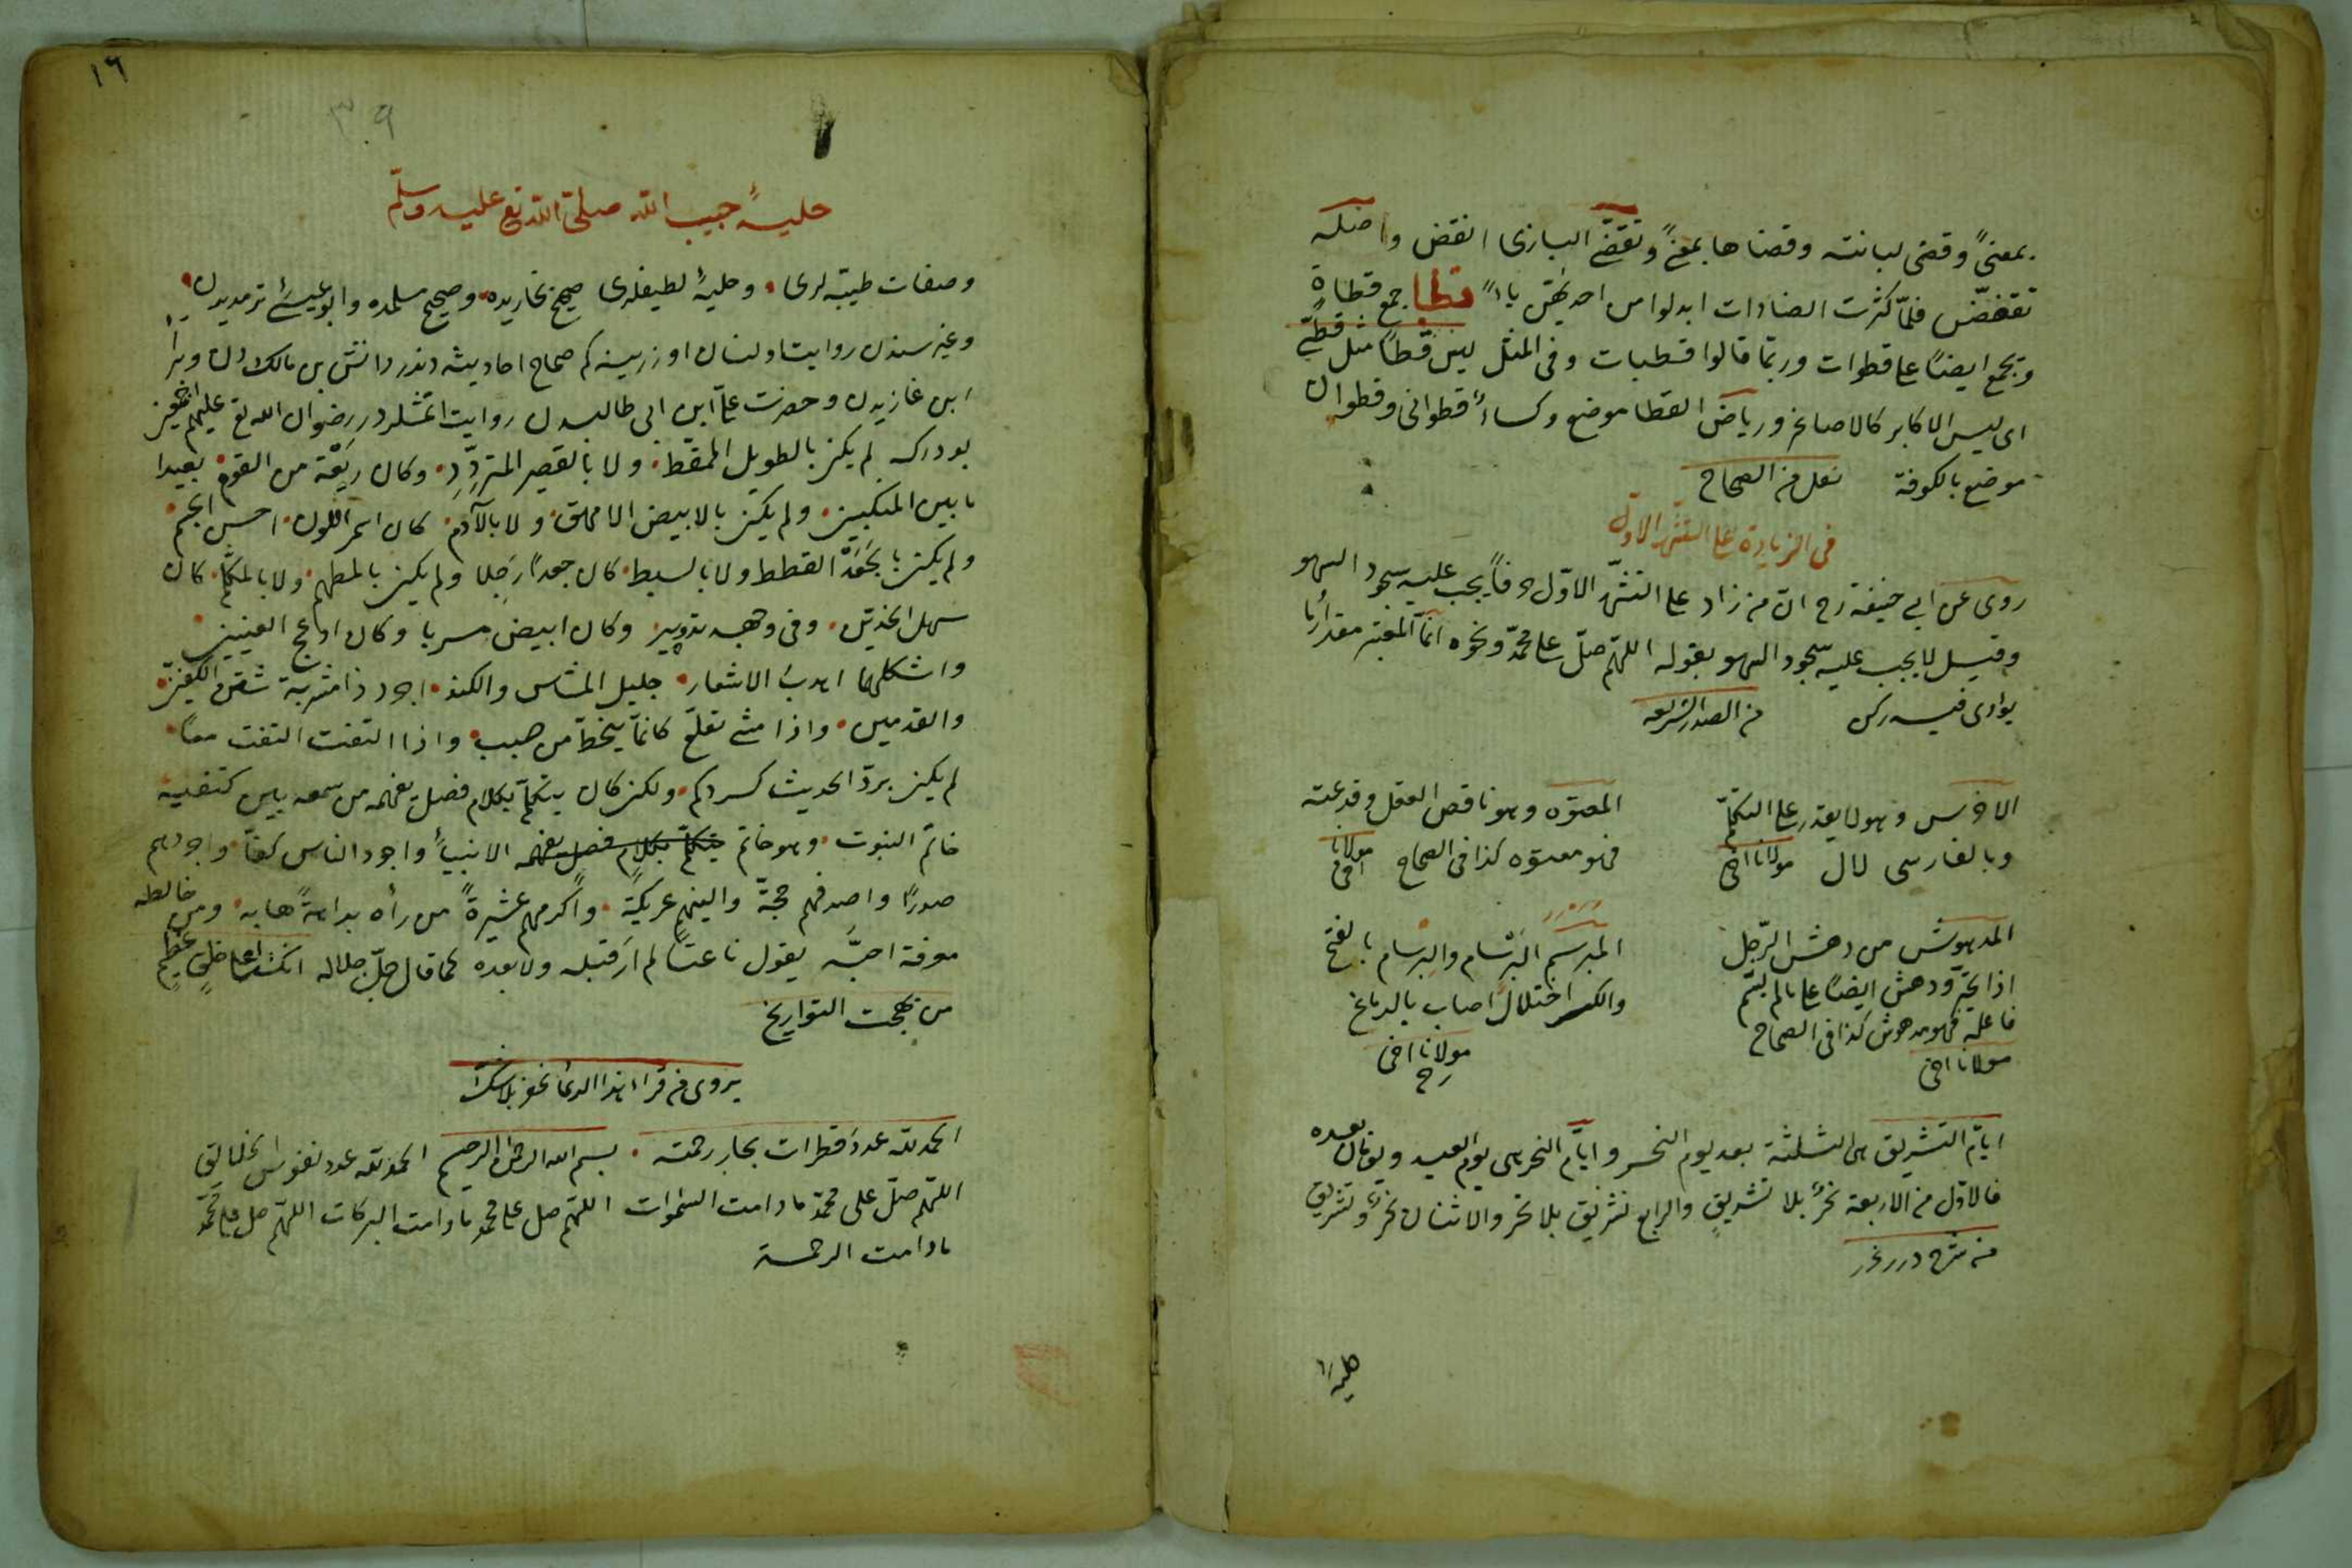 بمعنىً وقضى لبانته وقضاها بمعنىً وتقضّى البازى انقض واصله
تقضّض فلمّا كثرت الضادات ابدلوا من احديهنّ ياءً قطا جمع قطاة
ويجمع ايضًا على قطوات وربّما قالوا قطيات وفى المثل ليس قطًا مثل قطىٍّ
اى ليس الاكابر كالاصاغر ورياض القطا موضع وكساءٌ قطوانى وقطوان
موضع بالكوفة نقل من الصحاح
فى الزيادة على التشهّد الاوّل
روى عن ابى حنيفة رح انّ من زاد على التشهّد الاوّل حرفاً يجب عليه سجود السهو
وقيل لا يجب عليه سجود السهو بقوله اللهمّ صلّ على محمّد ونحوه انّما المعتبر مقدار ما
يؤدى فيه ركن من الصدر الشريعه
الاخرس وهو لا يقدر على التكلّم
وبالفارسى لال مولانا اخى
المعتوه وهو ناقص العقل وقد عته
فهو معتوه كذا فى الصحاح مولانا اخى
المدهوش من دهش الرّجل
اذا تحيّر ودهش ايضًا على ما لم يسمّ
فاعله فهو مدهوش كذا فى الصحاح
مولانا اخى
المبرسم البَرسام والبِرسام بالفتح
والكسر اختلال اصاب بالدماغ
مولانا اخى
رح
ايّام التشريق هى الثلثة بعد يوم النحر وايّام النحر هى يوم العيد ويومان بعده
فالاوّل من الاربعة نحرٌ بلا تشريقٍ والرابع تشريق بلا نحر والاثنان نحرٌ وتشريق
من شرح درر غرر
حليهٔ
١٦
٣٠٩
حليهٔ حبيب الله صلّى الله تع عليه وسلّم
وصفات طيّبه لرى وحليهٔ لطيفلرى صحيح بخاريده وصحيح مسلمده وابو عيسىٔ ترمديدن
وغيرسندن روايت اولنان اوزرينه كم صحاح احاديثه دندر دانس بن مالك دن وبراٗ
ابن عازبدن وحضرت علىّ ابن ابى طالبدن روايت اتمشلردر رضوان الله تع عليهم اجمعين
بودركه لم يكن بالطويل الممّغط ولا بالقصير المتردّد وكان ربعة من القوم بعيدا
ما بين المنكبين ولم يكن بالابيض الامهق ولا بالآدم كان اسمر اللون احسن الجسم
ولم يكن بالجَعْد القطط ولا بالسبط كان جعدًا رَجِلا ولم يكن بالمطهّم ولا بالمكلثم كان
سهل الخدّين وفى وجهه تدوير وكان ابيض مسربا وكان ادعج العينين
واشكلهما اهدب الاشفار جليل المشاس والكتد اجرد ذا مسربة شثن الكفّين
والقدمين واذا مشى تقلّع كانّما ينحطّ من صبب واذا التفت التفت معًا
لم يكن يردّ الحديث كسردكم ولكن كان يتكلّم بكلام فصل يفهمه من سمعه بين كتفيه
خاتم النبوت وهو خاتم يتكلّم بكلام فصل يفهمه الانبياء واجود الناس كفًّا واجودهم
صدرًا واصدقهم حجّة والينهم عريكةً واكرمهم عشيرةً من رأه بداهةً هابه ومن خالطه
معرفة احبّه يقول ناعته لم ار قبله ولا بعده كما قال جلّ جلاله انك لعلى خلقٍ عظيمٍ
من بهجت التواريخ
يروى من قرأ هذا الدعا غفر بلا شك
الحمد لله عددَ قطرات بحار رحمته بسم الله الرحمن الرحيم الحمد لله عدد نفوس الخلايق
اللهمّ صلّ على محمّد ما دامت السموات اللهمّ صل على محمد ما دامت البركات اللهمّ صل على محمّد
ما دامت الرحمة